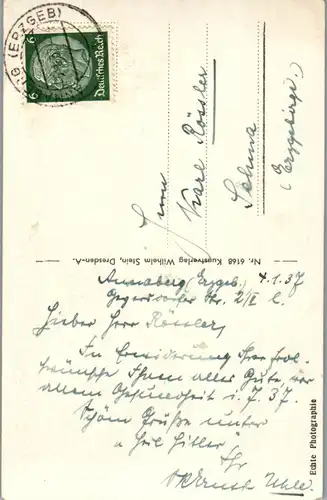 (ERZGEB)
Deutsches Reich
6
6
Herrn
Karl Rössler
Sehma
(Erzgebirge.)
Nr. 6168 Kunstverlag Wilhelm Stein, Dresden-A.
Annaberg (Erzgeb.) 4.1.37
Str. 2/II l.
Lieber Herr Rössler,
In Erwiderung Ihrer
wünsche Ihnen alles Gute, vor
allem Gesundheit i. J. 37.
Schöne Grüße unter
Heil Hitler!
Ihr
Echte Photographie